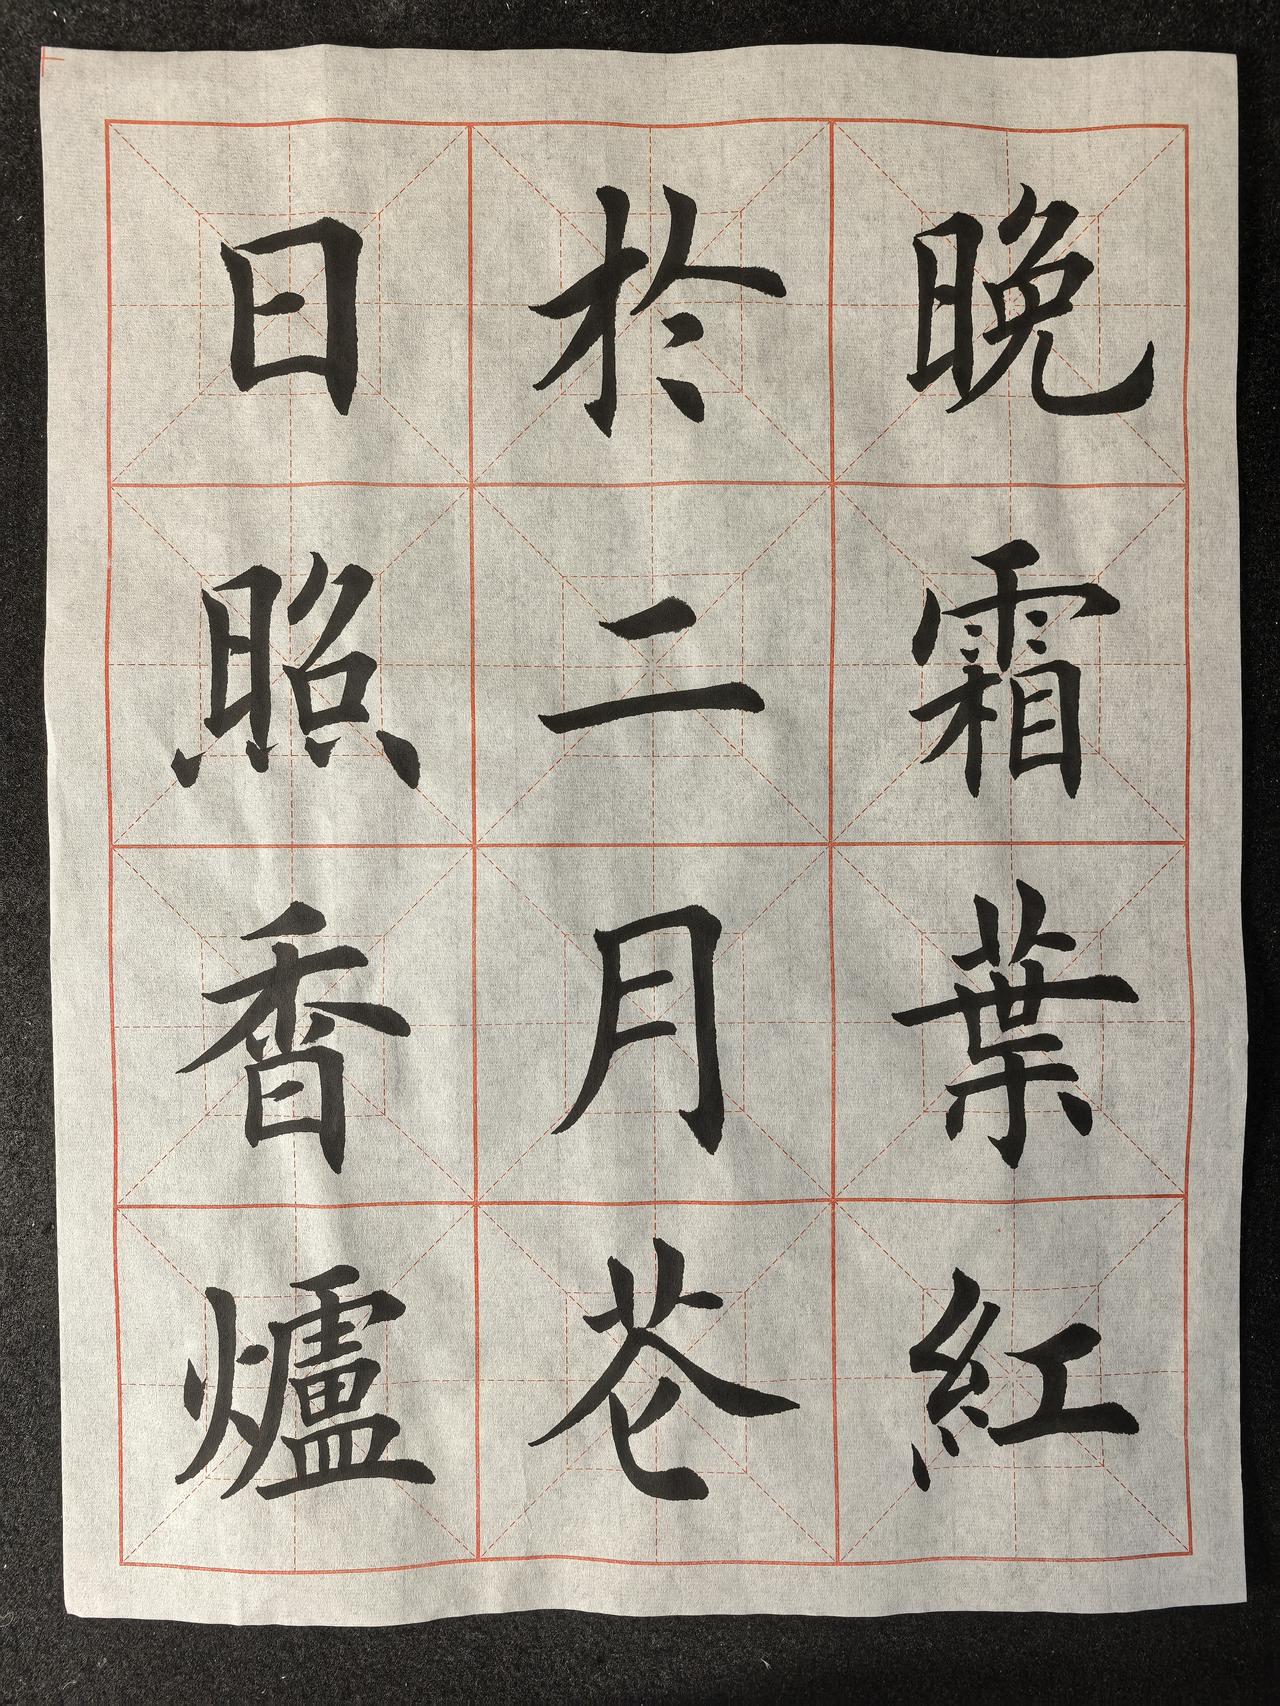 晚霜葉紅
於二月花
日照香爐